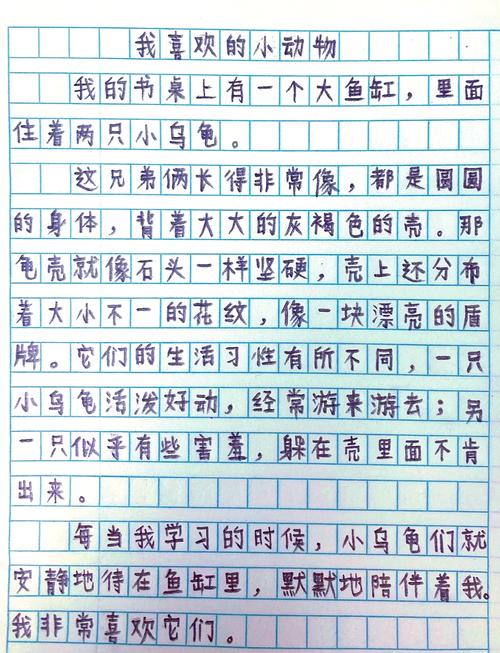 我喜欢的小动物
我的书桌上有一个大鱼缸，里面
住着两只小乌龟。
这兄弟俩长得非常像，都是圆圆
的身体，背着大大的灰褐色的壳。那
龟壳就像石头一样坚硬，壳上还分布
着大小不一的花纹，像一块漂亮的盾
牌。它们的生活习性有所不同，一只
小乌龟活泼好动，经常游来游去；另
一只似乎有些害羞，躲在壳里面不肯
出来。
每当我学习的时候，小乌龟们就
安静地待在鱼缸里，默默地陪伴着我。
我非常喜欢它们。